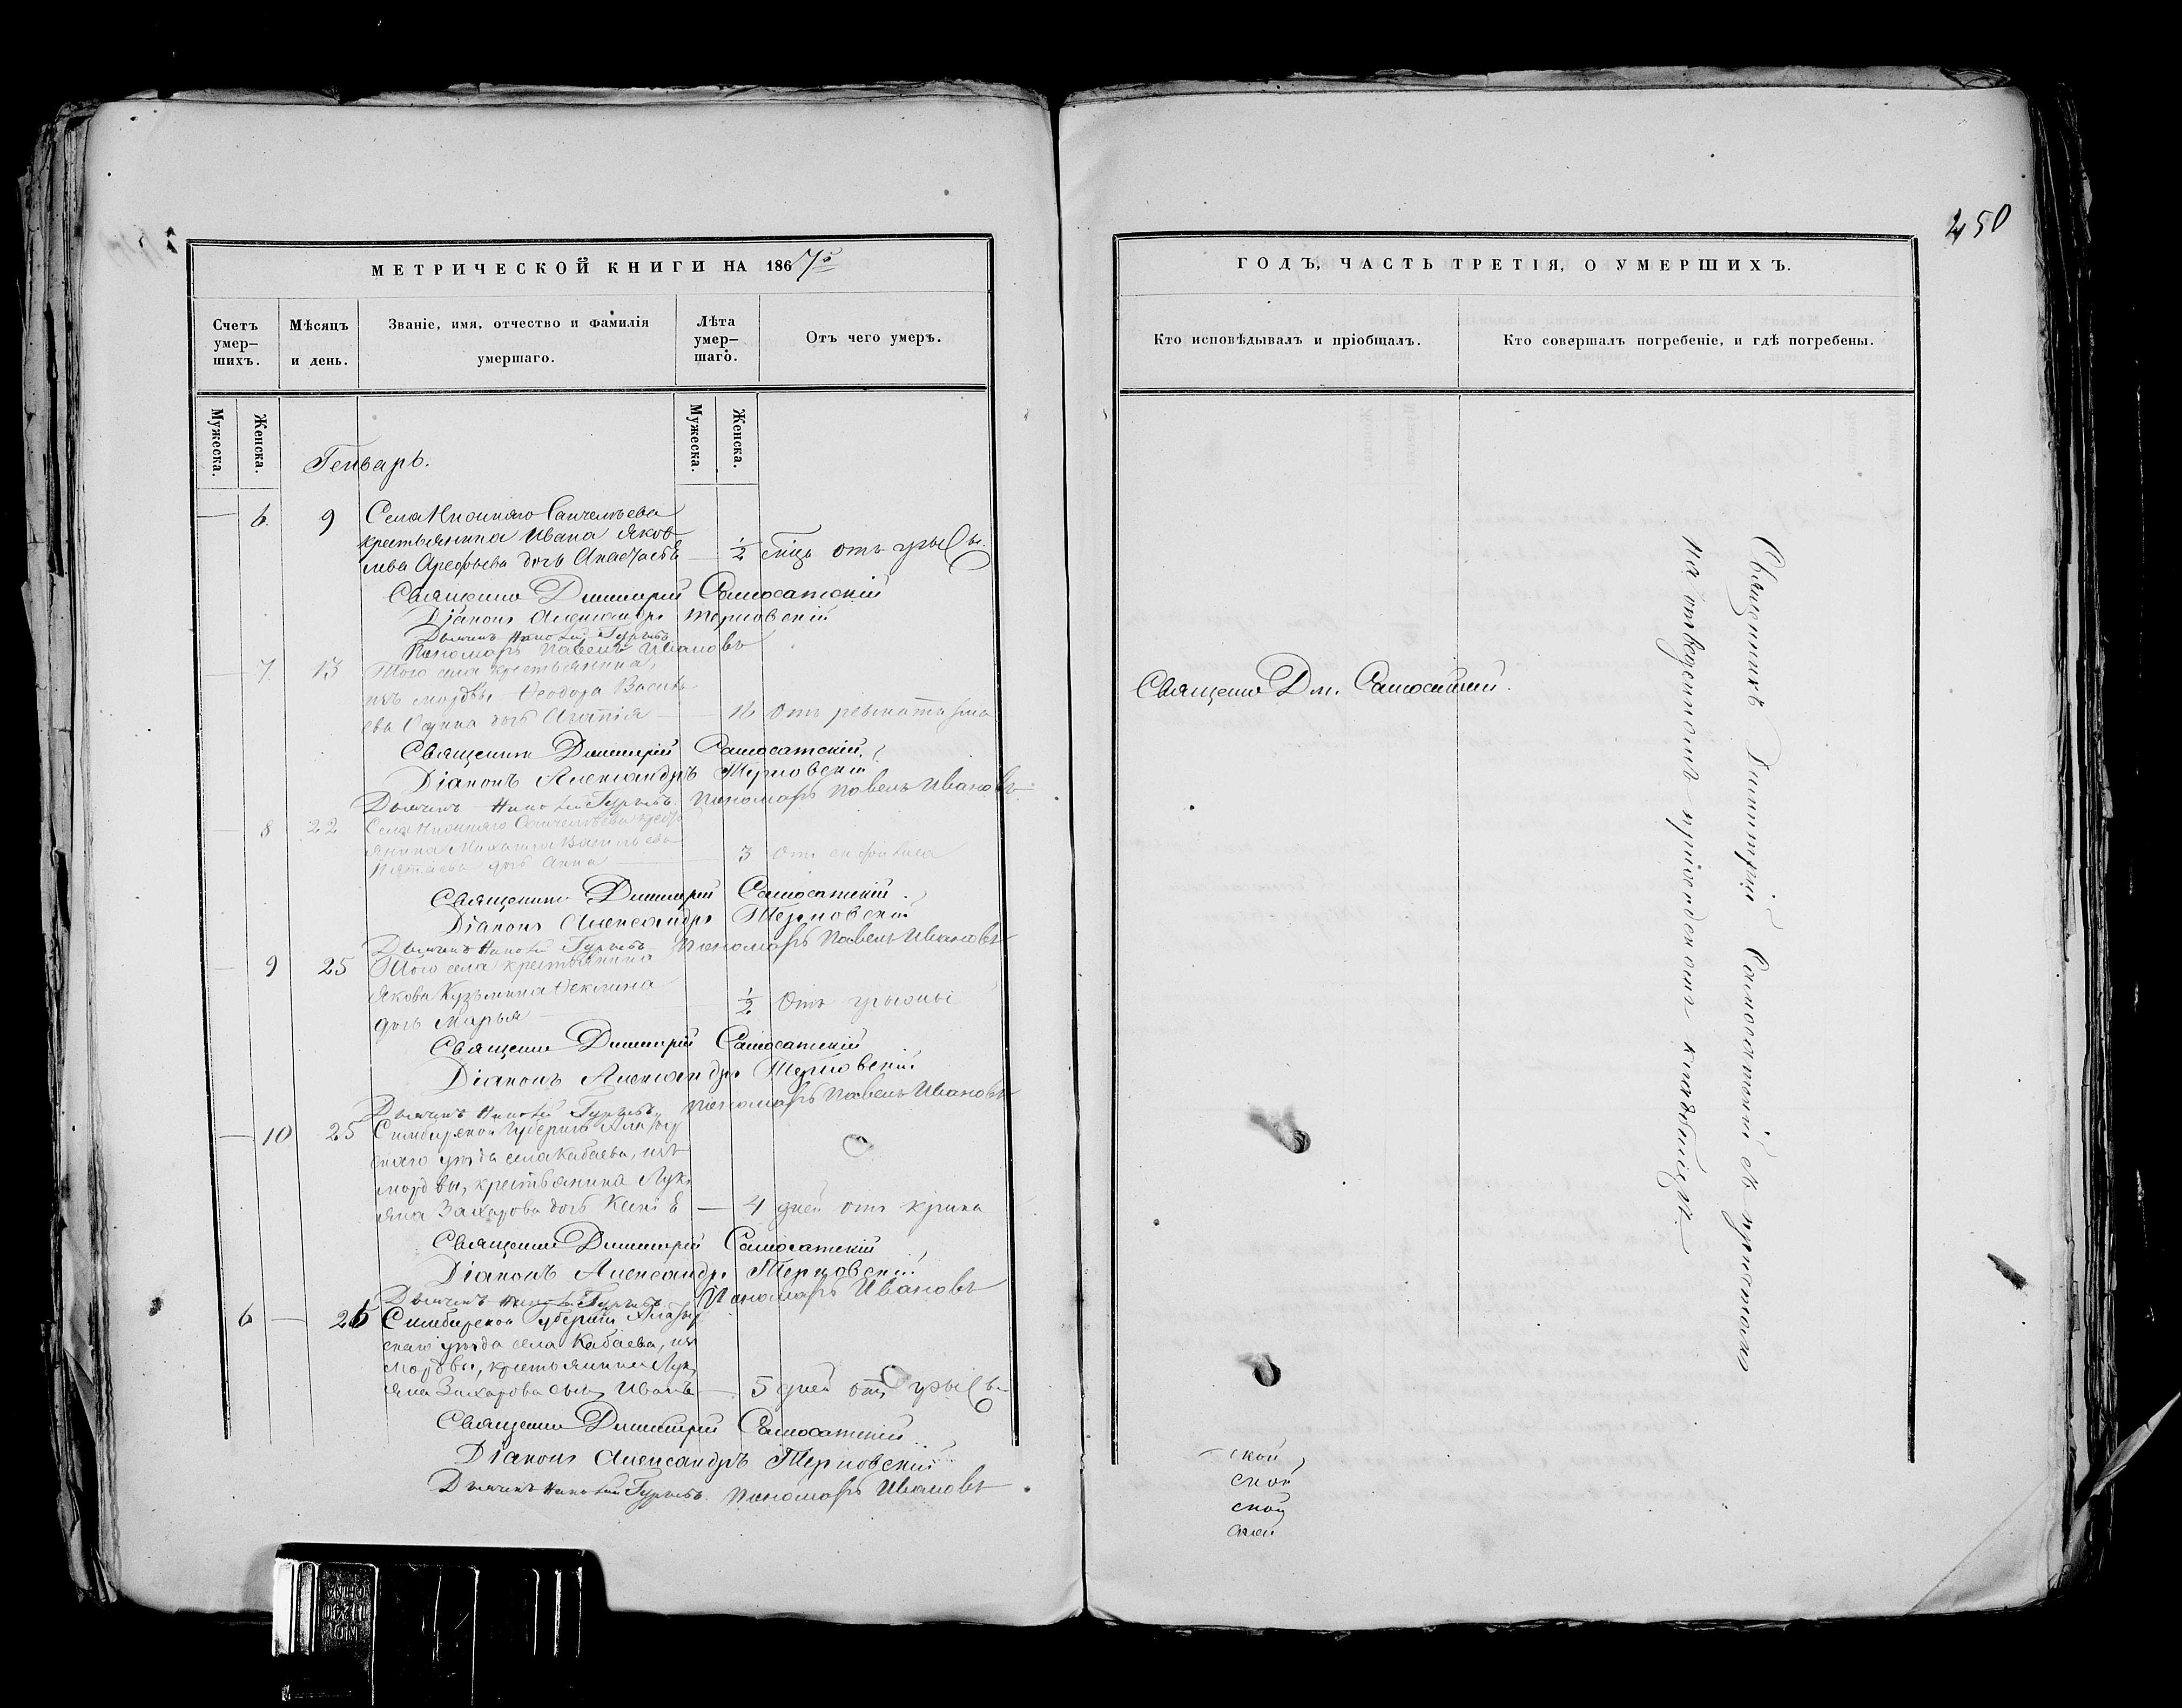 450
МЕТРИЧЕСКОЙ КНИГИ НА 1867го
Счетъ умер–шихъ.
Мѣсяцъ и день.
Званіе, имя, отчество и фамилія умершаго.
Лѣта умер–шаго.
Отъ чего умеръ.
Мужеска.
Женска.
Мужеска.
Женска.
Генварь.
6. 9 Села Нижняго Санчелѣева
крестьянина Ивана Яков
лева Арефьева дочь Анастасія ½
отъ грыжы.
Священникъ Димитрій Самосатскій
Діаконъ Александръ Терновскій
Дьячекъ Николай Гурьевъ
Пономарь Павелъ Ивановъ
7. 13 Того села крестьянина,
изъ мордвы Ѳеодора Василь
ева дочь Агапія — 16 Отъ ревматизма
Священникъ Димитрій Самосатскій
Діаконъ Александръ Терновскій
Дьячекъ Николай Гурьевъ. Пономарь Павелъ Ивановъ
8 22 Села Нижняго Санчелѣева кресть
янина Михаила Васильева
дочь Анна — 3 Отъ
Священникъ Димитрій Самосатскій
Діаконъ Александръ Терновскій
Дьячекъ Николай Гурьевъ Пономарь Павелъ Ивановъ
9 25 Того села крестьянина
Якова Кузьмина Ѳеклина
дочь Марья — ½ Отъ грыжы
Священникъ Димитрій Самосатскій
Діаконъ Александръ Терновскій
Дьячекъ Николай Гурьевъ Пономарь Павелъ Ивановъ
10 25 Симбирской Губерніи Алатыр
скаго уѣзда села Кабаева, изъ
мордвы, крестьянина Лук
яна Захарова дочь Ксенія — 4 дней отъ крика
Священникъ Димитрій Самосатскій
Діаконъ Александръ Терновскій
Дьячекъ Николай Гурьевъ Пономарь Ивановъ
6 — 26 Симбирской Губерніи Алатыр
скаго уѣзда села Кабаева, изъ
мордвы, крестьянина Лук
яна Захарова сынъ Иванъ — 5 дней отъ грыжы
Священникъ Димитрій Самосатскій
Діаконъ Александръ Терновскій
Дьячекъ Николай Гурьевъ. Пономарь Ивановъ
ГОДЪ, ЧАСТЬ ТРЕТІЯ, О УМЕРШИХЪ.
Кто исповѣдывалъ и пріобщалъ.
Кто совершалъ погребеніе, и гдѣ погребены.
Священникъ Дм. Самосатскій.
Священникъ Димитрій Самосатскій съ причтомъ
на отведенномъ приходскомъ кладбищѣ.
ской
ской
ской